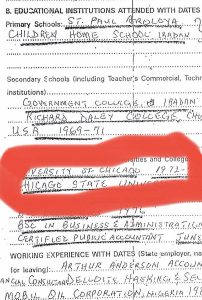 8. EDUCATIONAL INSTITUTIONS ATTENDED WITH DATES
Primary Schools: ST. PAUL AROLOYA
CHILDREN HOME SCHOOL IBADAN
Secondary Schools (including Teacher's Commercial, Techn
institutions)
GOVERNMENT COLLEGE, IBADAN
RICHARD DALEY COLLEGE, CH
U.S.A 1969-71
ities and Colleg
VERSITY OF CHICAGO 1972-
HICAGO STATE UNI
BSC IN BUSINESS & ADMINISTRATIO
CERTIFIED PUBLIC ACCOUNTANT
WORKING EXPERIENCE WITH DATES (State employer, na
for leaving): ARTHUR ANDERSON ACCOUN
DELLOITE HASKING & SEL
MOBIL OIL CORPORATION, NIGERIA